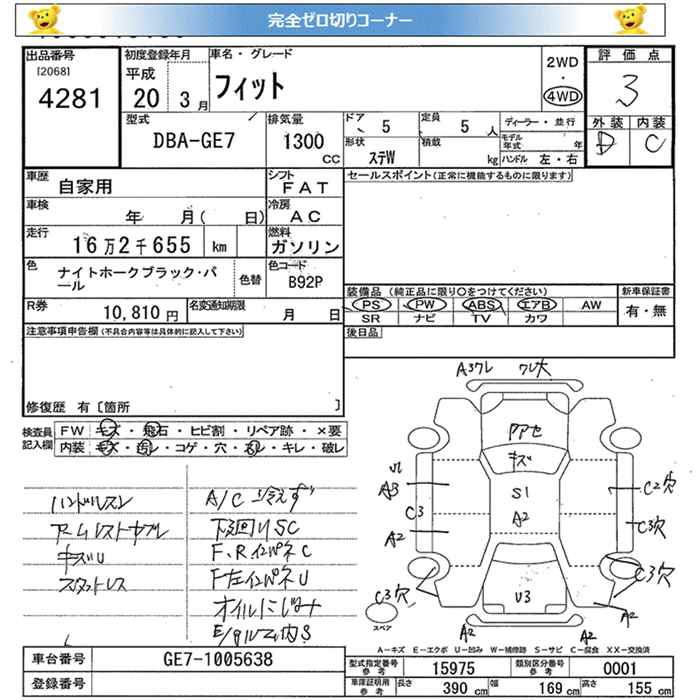 完全ゼロ切りコーナー
出品番号 初度登録年月 車名・グレード 評価点
[2068] 平成 フィット 2WD ・ 4WD 3
4281 20 3月
外装 内装
D C
型式 排気量 ドア 5 定員 5 人 ディーラー・並行
DBA-GE7 1300 cc 形状 ステW 積載 kg モデル年式 年
ハンドル 左・右
車歴 自家用 シフト FAT セールスポイント(正常に機能するものに限ります)
車検 年 月( 日) 冷房 AC
走行 16万2千655 km 燃料 ガソリン
色 ナイトホークブラック・パール 色替 色コード B92P
装備品 (純正品に限り○をつけてください) 新車保証書
R券 10,810 円 名変通知期限 月 日 PS PW ABS エアB AW 有・無
SR ナビ TV カワ
注意事項申告欄(不具合内容等は具体的に記入して下さい) 後日品
修復歴 有 [箇所 ]
検査員記入欄 FW キズ・飛石・ヒビ割・リペア跡・×要
内装 キズ・汚レ・コゲ・穴・スレ・キレ・破レ
ハンドルスレ A/C 冷えず
アームレストヤブレ 下廻りSC
キズU F、RインパネC
スタットレス F左インパネU
オイルにじみ
A3ワレ ワレ大
アアセ
キズ
ワレ
A3 S1 C2穴
C3 A2 C3穴
A2
C3穴 U3 C3穴
スペア A2 A2 A2
A-キズ E-エクボ U-凹み W-補修跡 S-サビ C-腐食 XX-交換済
車台番号 GE7-1005638 型式指定番号 参考 15975 類別区分番号 参考 0001
登録番号 車庫証明用 参考 長さ 390 cm 幅 169 cm 高さ 155 cm